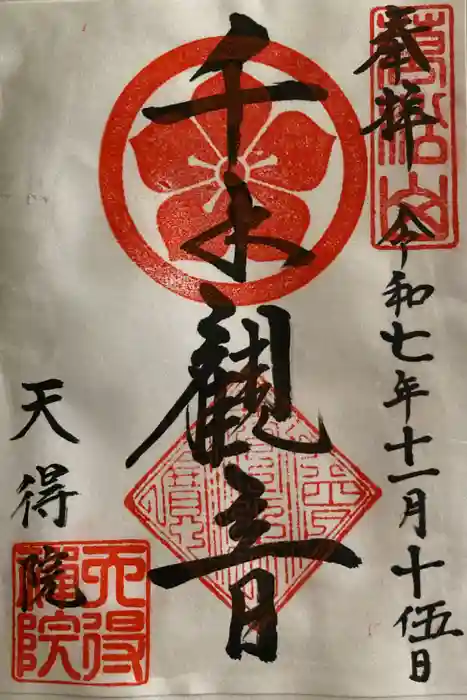 奉拝
令和七年十一月十伍日
千手観音
天得院
萬松山
天得院